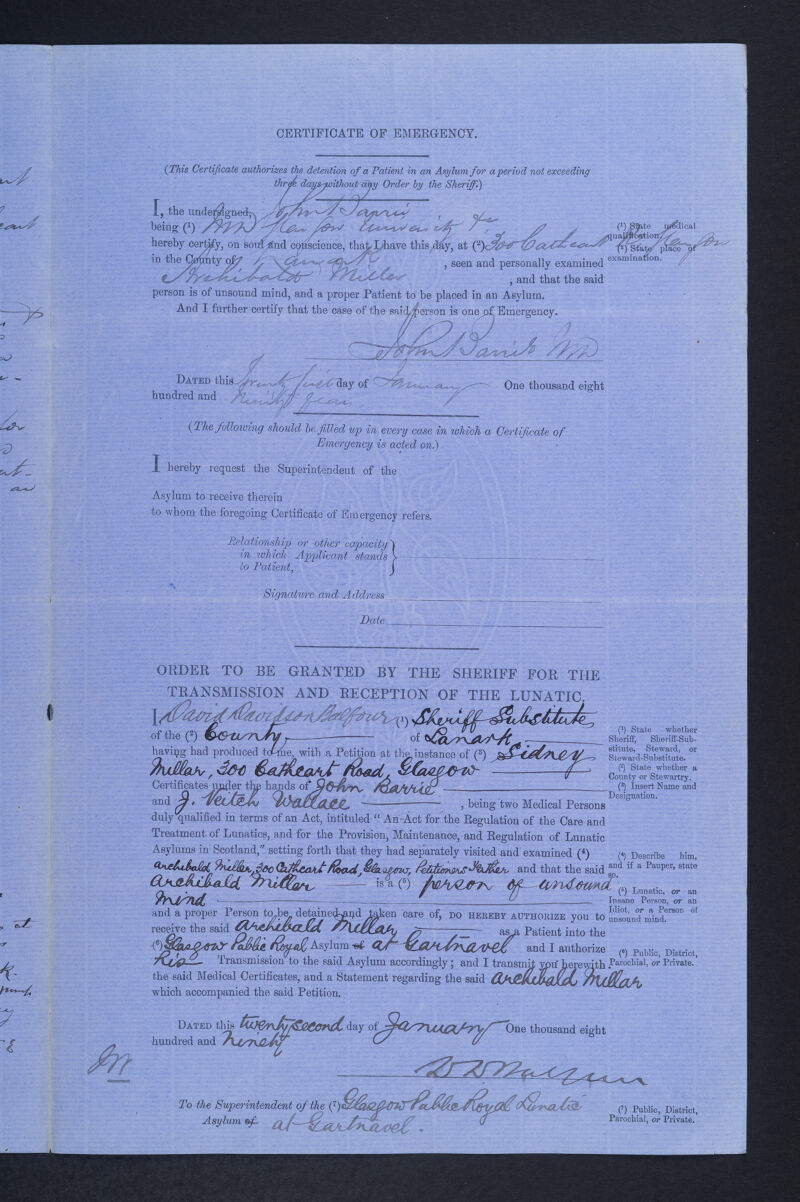 CERTIFICATE OF EMERGENCY.
(This Certificate authorizes the detention of a Patient in an Asylum for a period not exceeding
three days without any Order by the Sheriff.)
I, the undersigned, John Barrie
being (1) MD Glasgow University &c
hereby certify, on soul and conscience, that I have this day, at (2) 300 Cathcart Rd Glasgow
in the County of Lanark, seen and personally examined
Archibald Millar, and that the said
person is of unsound mind, and a proper Patient to be placed in an Asylum.
And I further certify that the case of the said person is one of Emergency.
John Barrie MD
DATED this Twenty first day of January One thousand eight
hundred and Ninety
(1) State medical
qualification.
(2) State place of
examination.
(The following should be filled up in every case in which a Certificate of
Emergency is acted on.)
I hereby request the Superintendent of the
Asylum to receive therein
to whom the foregoing Certificate of Emergency refers.
Relationship or other capacity
in which Applicant stands
to Patient,
Signature and Address
Date
ORDER TO BE GRANTED BY THE SHERIFF FOR THE
TRANSMISSION AND RECEPTION OF THE LUNATIC.
I David Davidson Balfour (1) Sheriff Substitute
of the (2) County of Lanark
having had produced to me, with a Petition at the instance of (3) Sidney
Millar, 300 Cathcart Road, Glasgow
Certificates under the hands of John Barrie
and J. Veitch Wallace, being two Medical Persons
duly qualified in terms of an Act, intituled "An Act for the Regulation of the Care and
Treatment of Lunatics, and for the Provision, Maintenance, and Regulation of Lunatic
Asylums in Scotland," setting forth that they had separately visited and examined (4)
Archibald Millar, 300 Cathcart Road, Glasgow, Petitioners Father and that the said
Archibald Millar is a (5) person of unsound
mind
and a proper Person to be detained and taken care of, DO HEREBY AUTHORIZE you to
receive the said Archibald Millar as a Patient into the
(6) Glasgow Public Royal Asylum of at Gartnavel and I authorize
his Transmission to the said Asylum accordingly; and I transmit you herewith
the said Medical Certificates, and a Statement regarding the said Archibald Millar
which accompanied the said Petition.
DATED this twenty second day of January One thousand eight
hundred and Ninety
D D Balfour
To the Superintendent of the (7) Glasgow Public Royal Lunatic
Asylum of at Gartnavel.
(1) State whether
Sheriff, Sheriff-Sub-
stitute, Steward, or
Steward-Substitute.
(2) State whether a
County or Stewartry.
(3) Insert Name and
Designation.
(4) Describe him,
and if a Pauper, state
so.
(5) Lunatic, or an
Insane Person, or an
Idiot, or a Person of
unsound mind.
(6) Public, District,
Parochial, or Private.
(7) Public, District,
Parochial, or Private.